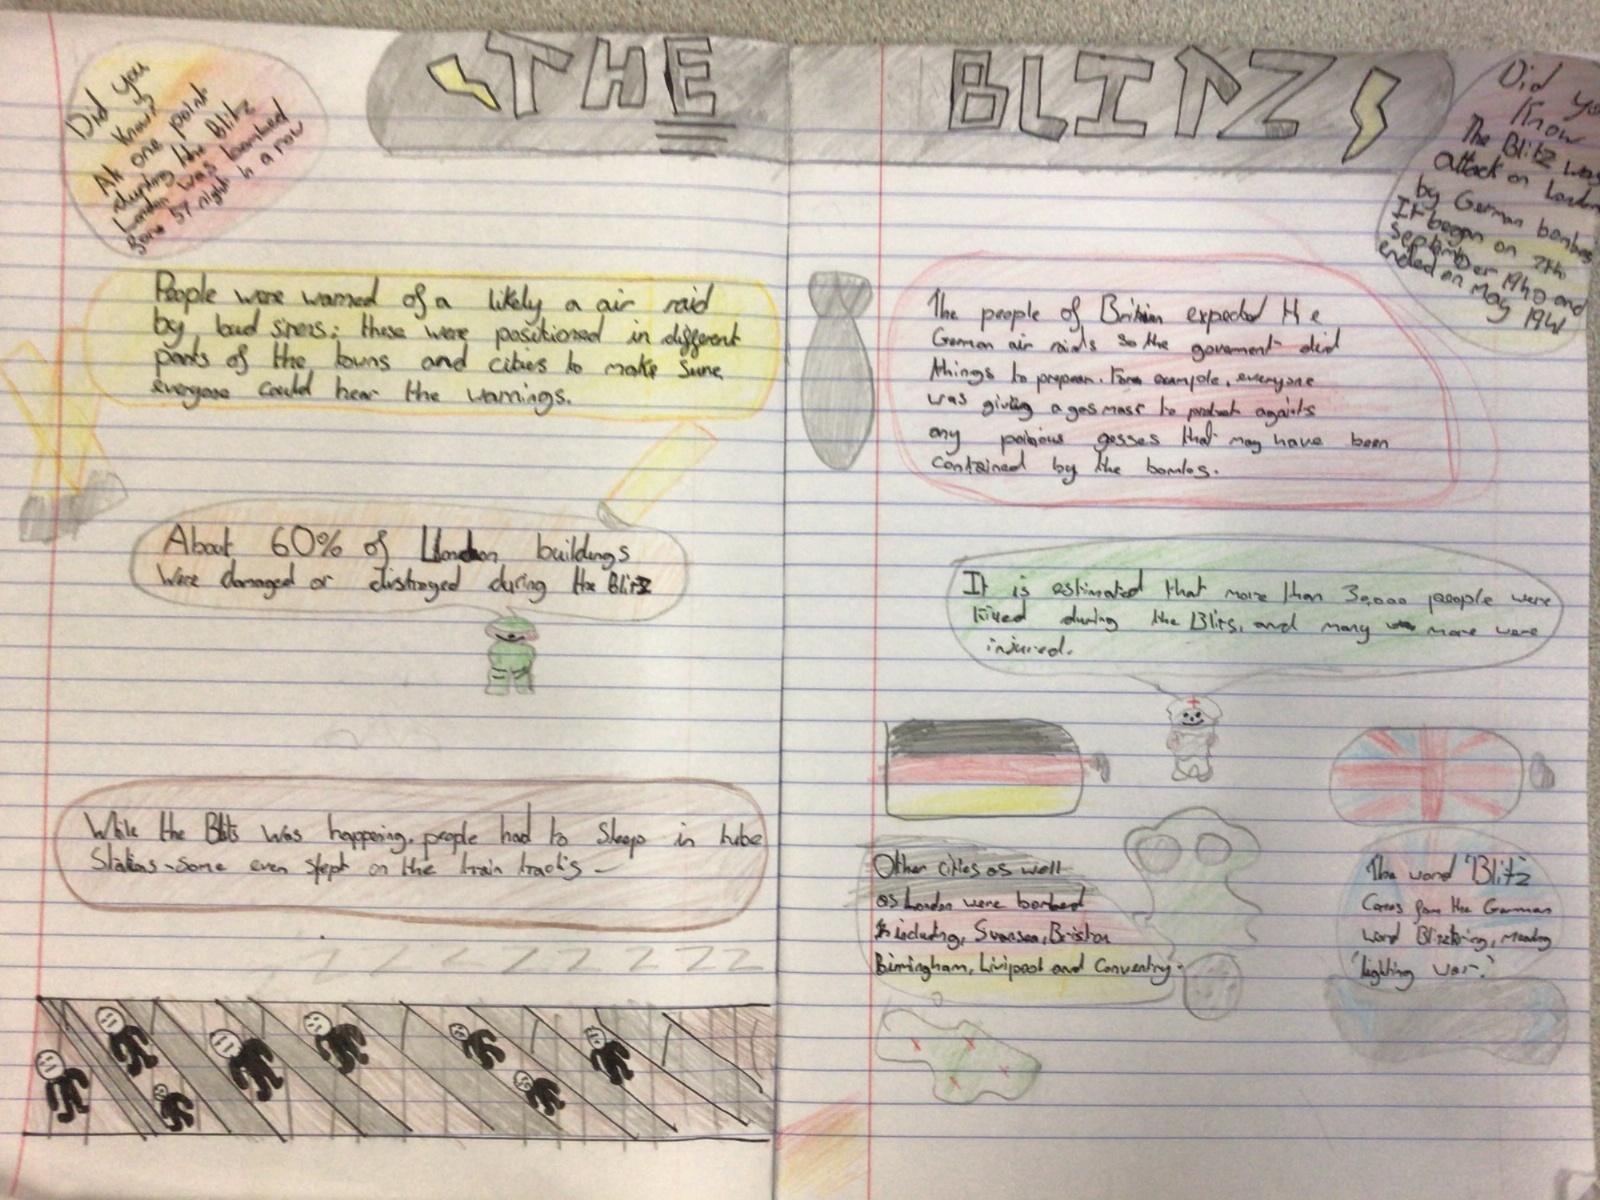 THE BLITZ
Did you
know?
At one point
during the Blitz
London was bombed
57 night in a row
People were warned of a likely a air raid
by loud sirens; these were positioned in different
parts of the towns and cities to make sure
everyone could hear the warnings.
About 60% of London buildings
Were damaged or distroyed during the Blitz
While the Blits was happening, people had to sleep in tube
Stations - some even slept on the train tracks -
Z Z Z Z Z Z Z Z
Did you
Know
The Blitz was
attack on London
by German bombers
It began on 7th
September 1940 and
ended on May
1941
The people of Britian expected the
German air raids so the goverment did
things to prepare. For example, everyone
was giving a gas mast to protect againts
any poisious gasses that may have been
contained by the bombs.
It is estimated that more than 30,000 people were
killed during the Blits, and many more were
injured.
Other cities as well
as London were bombed
including, Swansea, Bristan
Birmingham, Liverpool and Conventry.
The word 'Blitz
Comes from the German
word Blitzkring, meaning
'lighting war.'